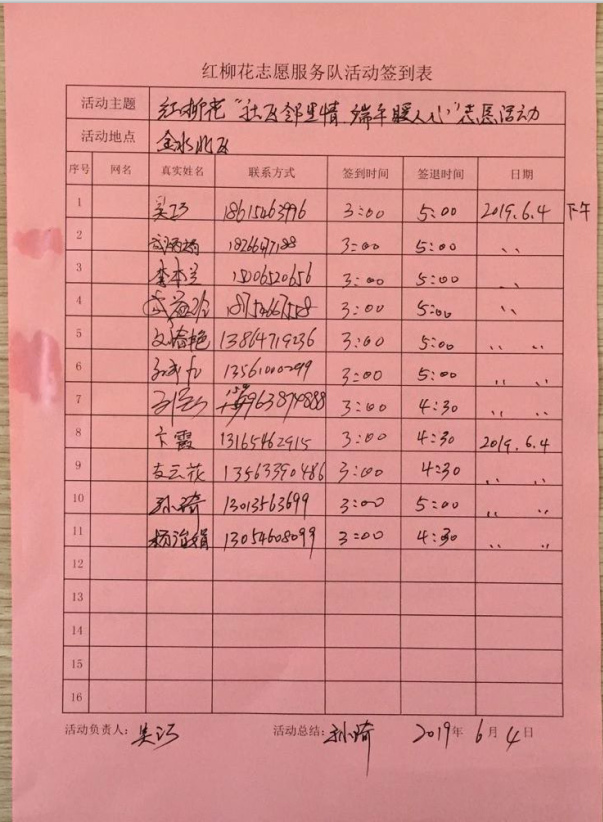 红柳花志愿服务队活动签到表
活动主题 红柳花"社区邻里情 端午暖人心"志愿活动
活动地点 金水北区
序号 网名 真实姓名 联系方式 签到时间 签退时间 日期
1 吴巧 18615463996 3:00 5:00 2019.6.4 下午
2 3:00 5:00 〃
3 李本兰 15006520656 3:00 5:00 〃
4 3:00 5:00 〃
5 13864719236 3:00 5:00 〃
6 3:00 5:00 〃
7 3:00 4:30 〃
8 卞霞 13165462915 3:00 4:30 2019.6.4
9 友云花 13563390486 3:00 4:30 〃
10 孙琦 13013563699 3:00 5:00 〃
11 杨治娟 13054608099 3:00 4:30 〃
12
13
14
15
16
活动负责人:吴巧 活动总结:孙琦 2019年6月4日